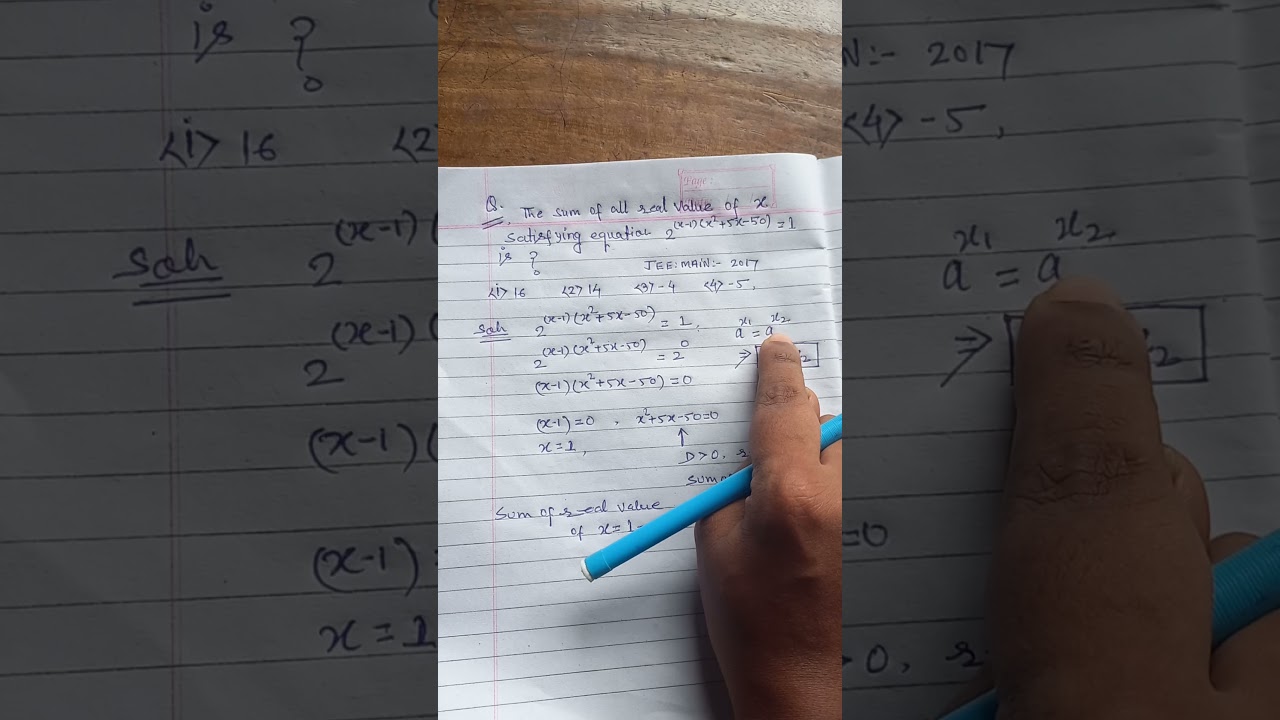 Page:
Q. The sum of all real value of x,
satisfying equation 2^(x-1)(x²+5x-50) = 1
is ?
JEE:MAIN:- 2017
<1> 16 <2> 14 <3> -4 <4> -5,
Soln 2^(x-1)(x²+5x-50) = 1,
a^x₁ = a^x₂
2^(x-1)(x²+5x-50) = 2^0
⇒
(x-1)(x²+5x-50) = 0
(x-1) = 0 , x²+5x-50=0
x = 1,
↑
D>0,
sum
Sum of real value
of x = 1-